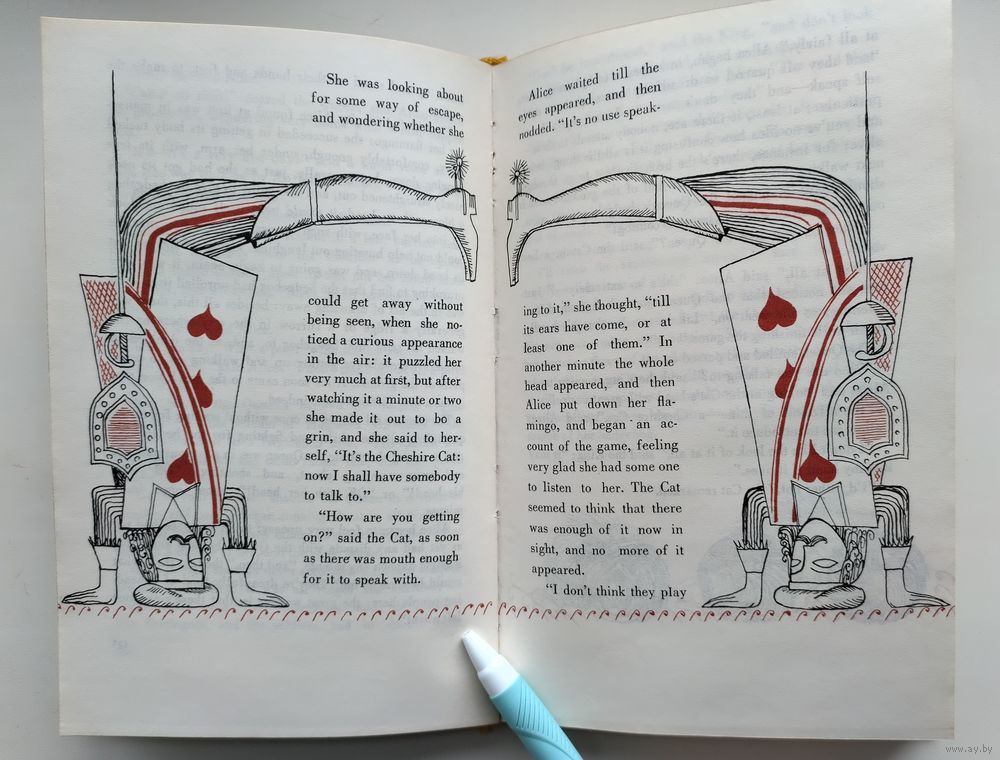 She was looking about
for some way of escape,
and wondering whether she
could get away without
being seen, when she no-
ticed a curious appearance
in the air: it puzzled her
very much at first, but after
watching it a minute or two
she made it out to bo a
grin, and she said to her-
self, “It’s the Cheshire Cat:
now I shall have somebody
to talk to.”
“How are you getting
on?” said the Cat, as soon
as there was mouth enough
for it to speak with.
Alice waited till the
eyes appeared, and then
nodded. “It’s no use speak-
ing to it,” she thought, “till
its ears have come, or at
least one of them.” In
another minute the whole
head appeared, and then
Alice put down her fla-
mingo, and began an ac-
count of the game, feeling
very glad she had some one
to listen to her. The Cat
seemed to think that there
was enough of it now in
sight, and no more of it
appeared.
“I don’t think they play
www.ay.by